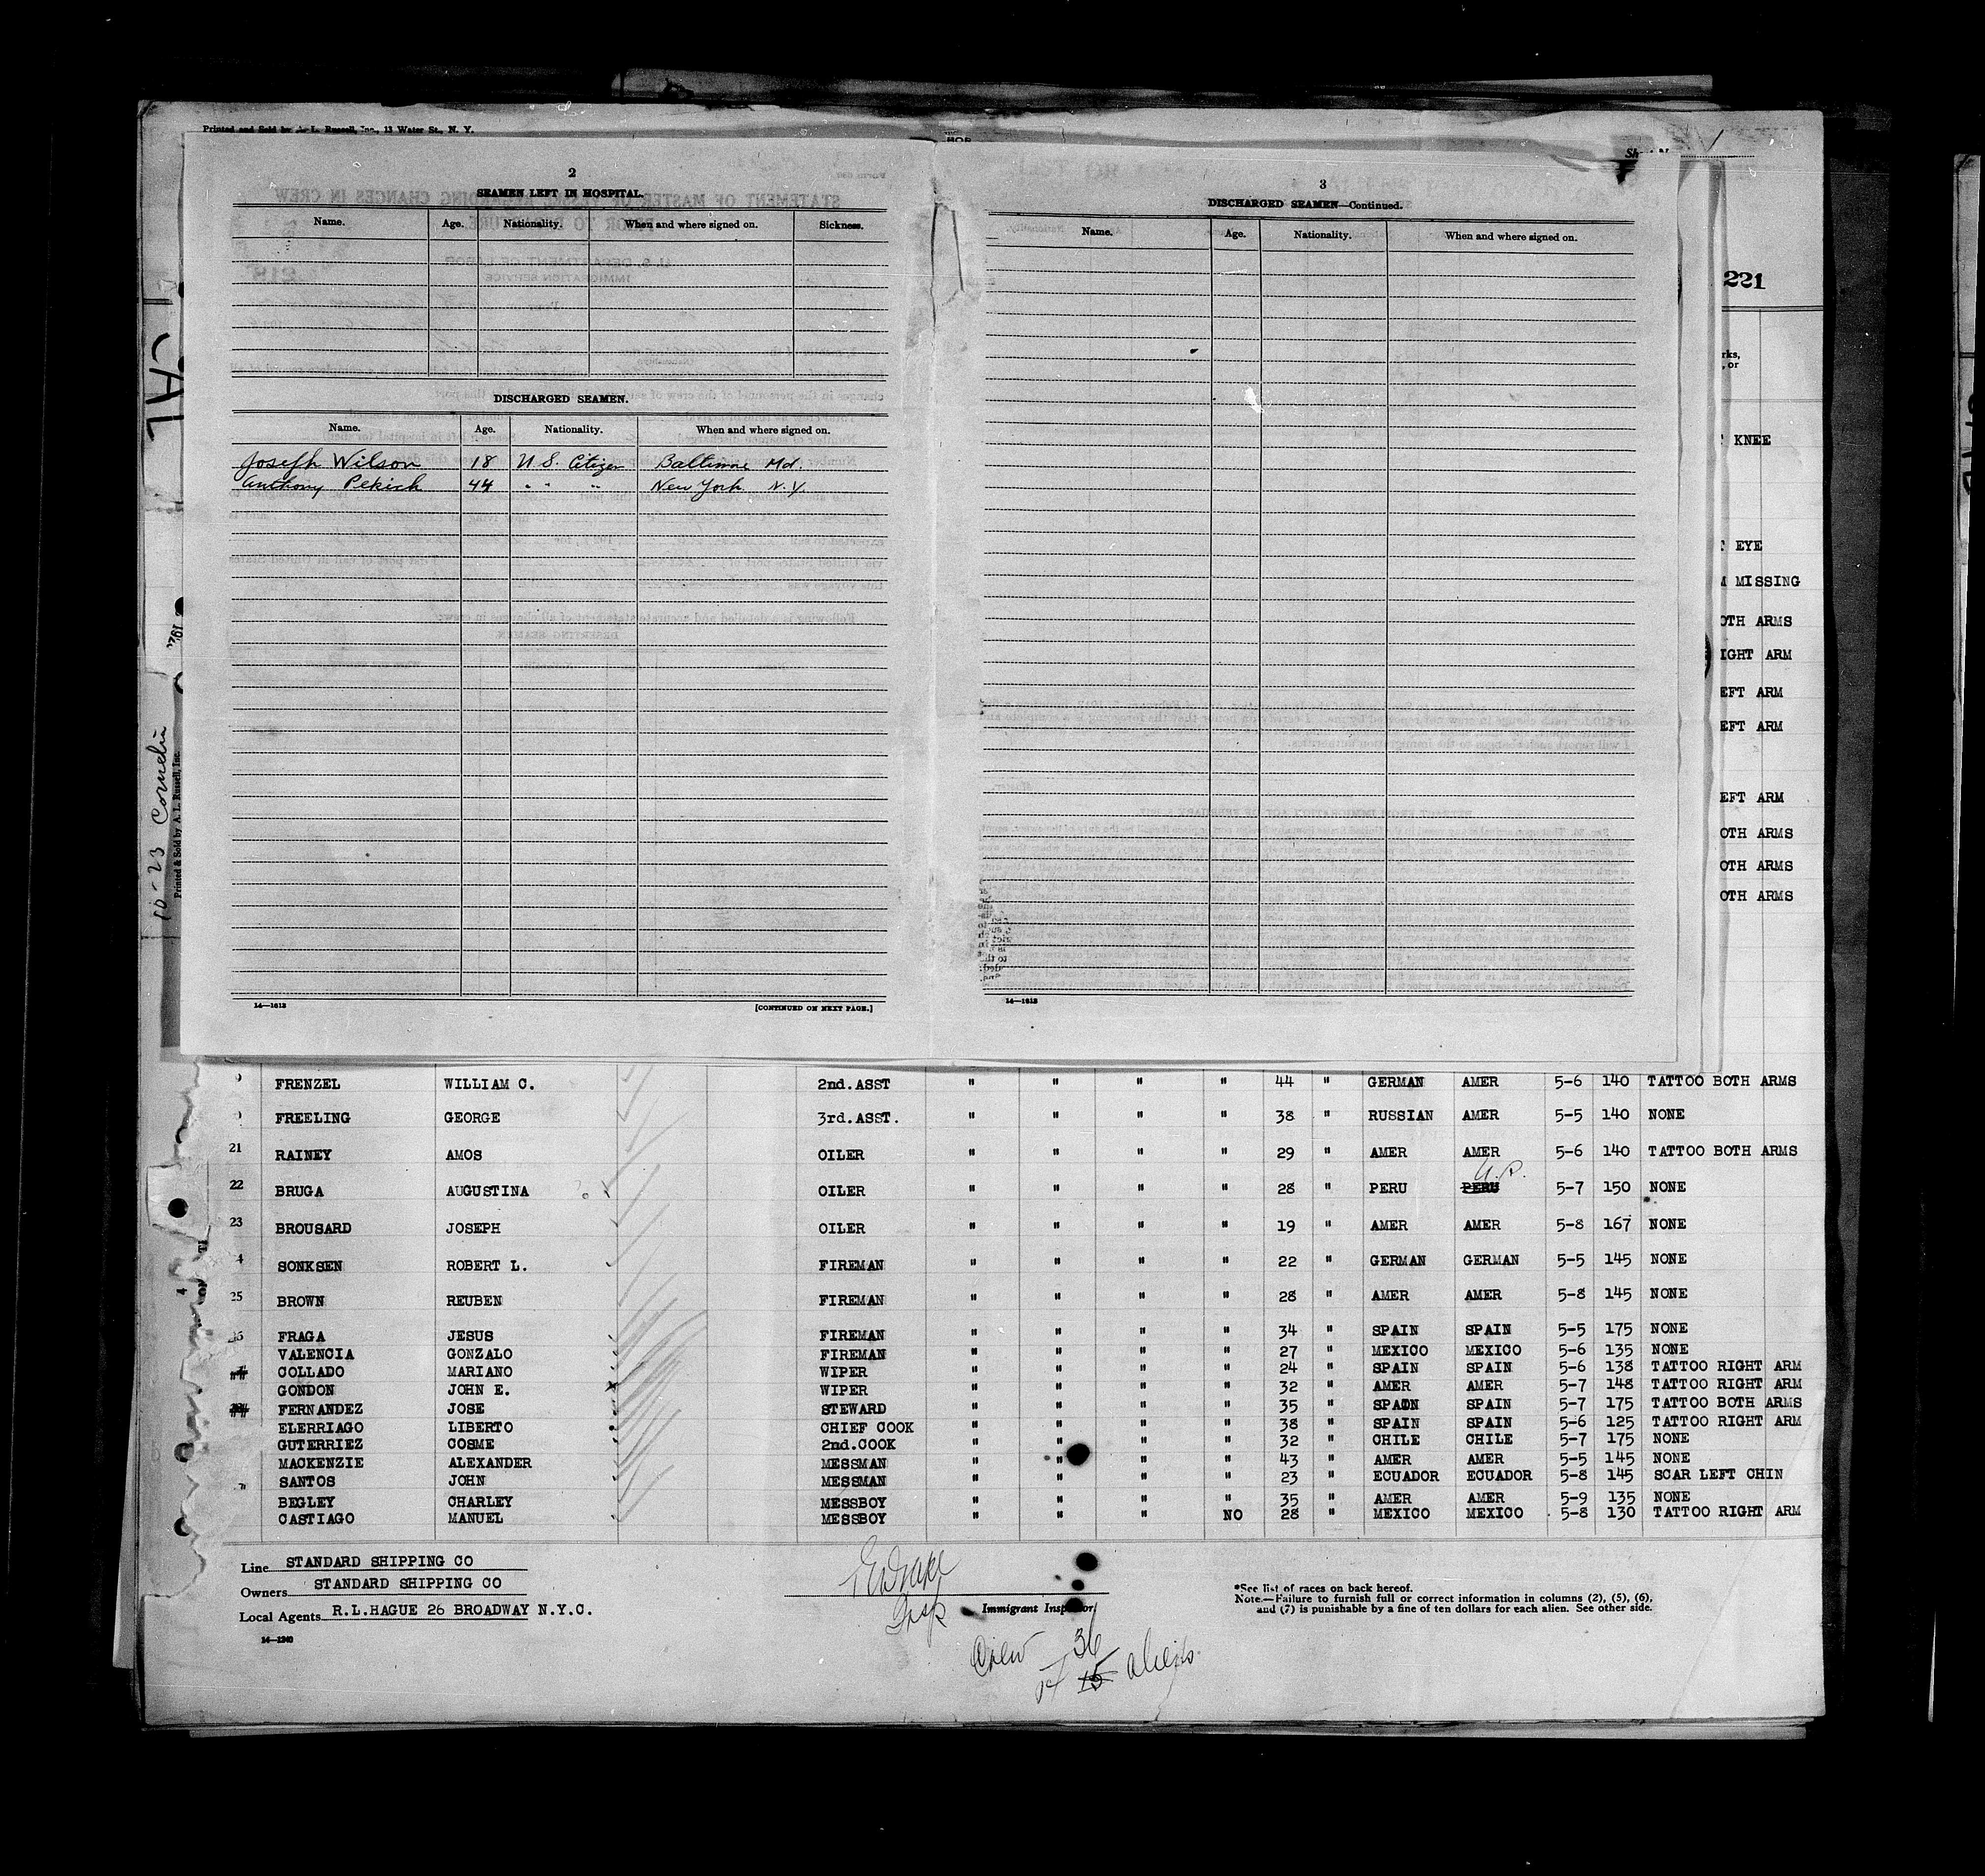 Printed and Sold by A. L. Russell, Inc., 13 Water St., N. Y.
2
SEAMEN LEFT IN HOSPITAL.
Name. Age. Nationality. When and where signed on. Sickness.
DISCHARGED SEAMEN.
Name. Age. Nationality. When and where signed on.
Joseph Wilson 18 U.S. Citizen Baltimore Md.
Anthony Pekich 44 " " " New York N.Y.
14—1613 [CONTINUED ON NEXT PAGE.]
3
DISCHARGED SEAMEN—Continued.
Name. Age. Nationality. When and where signed on.
14—1613
221
rks,
, or
KNEE
EYE
MISSING
OTH ARMS
IGHT ARM
EFT ARM
EFT ARM
EFT ARM
OTH ARMS
OTH ARMS
OTH ARMS
10-23
Printed & Sold by A. L. Russell, Inc.
FRENZEL WILLIAM C. 2nd.ASST " " " " 44 " GERMAN AMER 5-6 140 TATTOO BOTH ARMS
FREELING GEORGE 3rd.ASST. " " " " 38 " RUSSIAN AMER 5-5 140 NONE
21 RAINEY AMOS OILER " " " " 29 " AMER AMER 5-6 140 TATTOO BOTH ARMS
22 BRUGA AUGUSTINA OILER " " " " 28 " PERU PERU 5-7 150 NONE
23 BROUSARD JOSEPH OILER " " " " 19 " AMER AMER 5-8 167 NONE
4 SONKSEN ROBERT L. FIREMAN " " " " 22 " GERMAN GERMAN 5-5 145 NONE
25 BROWN REUBEN FIREMAN " " " " 28 " AMER AMER 5-8 145 NONE
26 FRAGA JESUS FIREMAN " " " " 34 " SPAIN SPAIN 5-5 175 NONE
VALENCIA GONZALO FIREMAN " " " " 27 " MEXICO MEXICO 5-6 135 NONE
COLLADO MARIANO WIPER " " " " 24 " SPAIN SPAIN 5-6 138 TATTOO RIGHT ARM
GONDON JOHN E. WIPER " " " " 32 " AMER AMER 5-7 148 TATTOO RIGHT ARM
FERNANDEZ JOSE STEWARD " " " " 35 " SPAIN SPAIN 5-7 175 TATTOO BOTH ARMS
ELERRIAGO LIBERTO CHIEF COOK " " " " 38 " SPAIN SPAIN 5-6 125 TATTOO RIGHT ARM
GUTERRIEZ COSME 2nd.COOK " " " " 32 " CHILE CHILE 5-7 175 NONE
MACKENZIE ALEXANDER MESSMAN " " " " 43 " AMER AMER 5-5 145 NONE
SANTOS JOHN MESSMAN " " " " 23 " ECUADOR ECUADOR 5-8 145 SCAR LEFT CHIN
BEGLEY CHARLEY MESSBOY " " " " 35 " AMER AMER 5-9 135 NONE
CASTIAGO MANUEL MESSBOY " " " NO 28 " MEXICO MEXICO 5-8 130 TATTOO RIGHT ARM
Line STANDARD SHIPPING CO
Owners STANDARD SHIPPING CO
Local Agents R.L.HAGUE 26 BROADWAY N.Y.C.
14—1240
Insp
Immigrant Inspector
*See list of races on back hereof.
Note.—Failure to furnish full or correct information in columns (2), (5), (6),
and (7) is punishable by a fine of ten dollars for each alien. See other side.
Crew 36
14 15 aliens